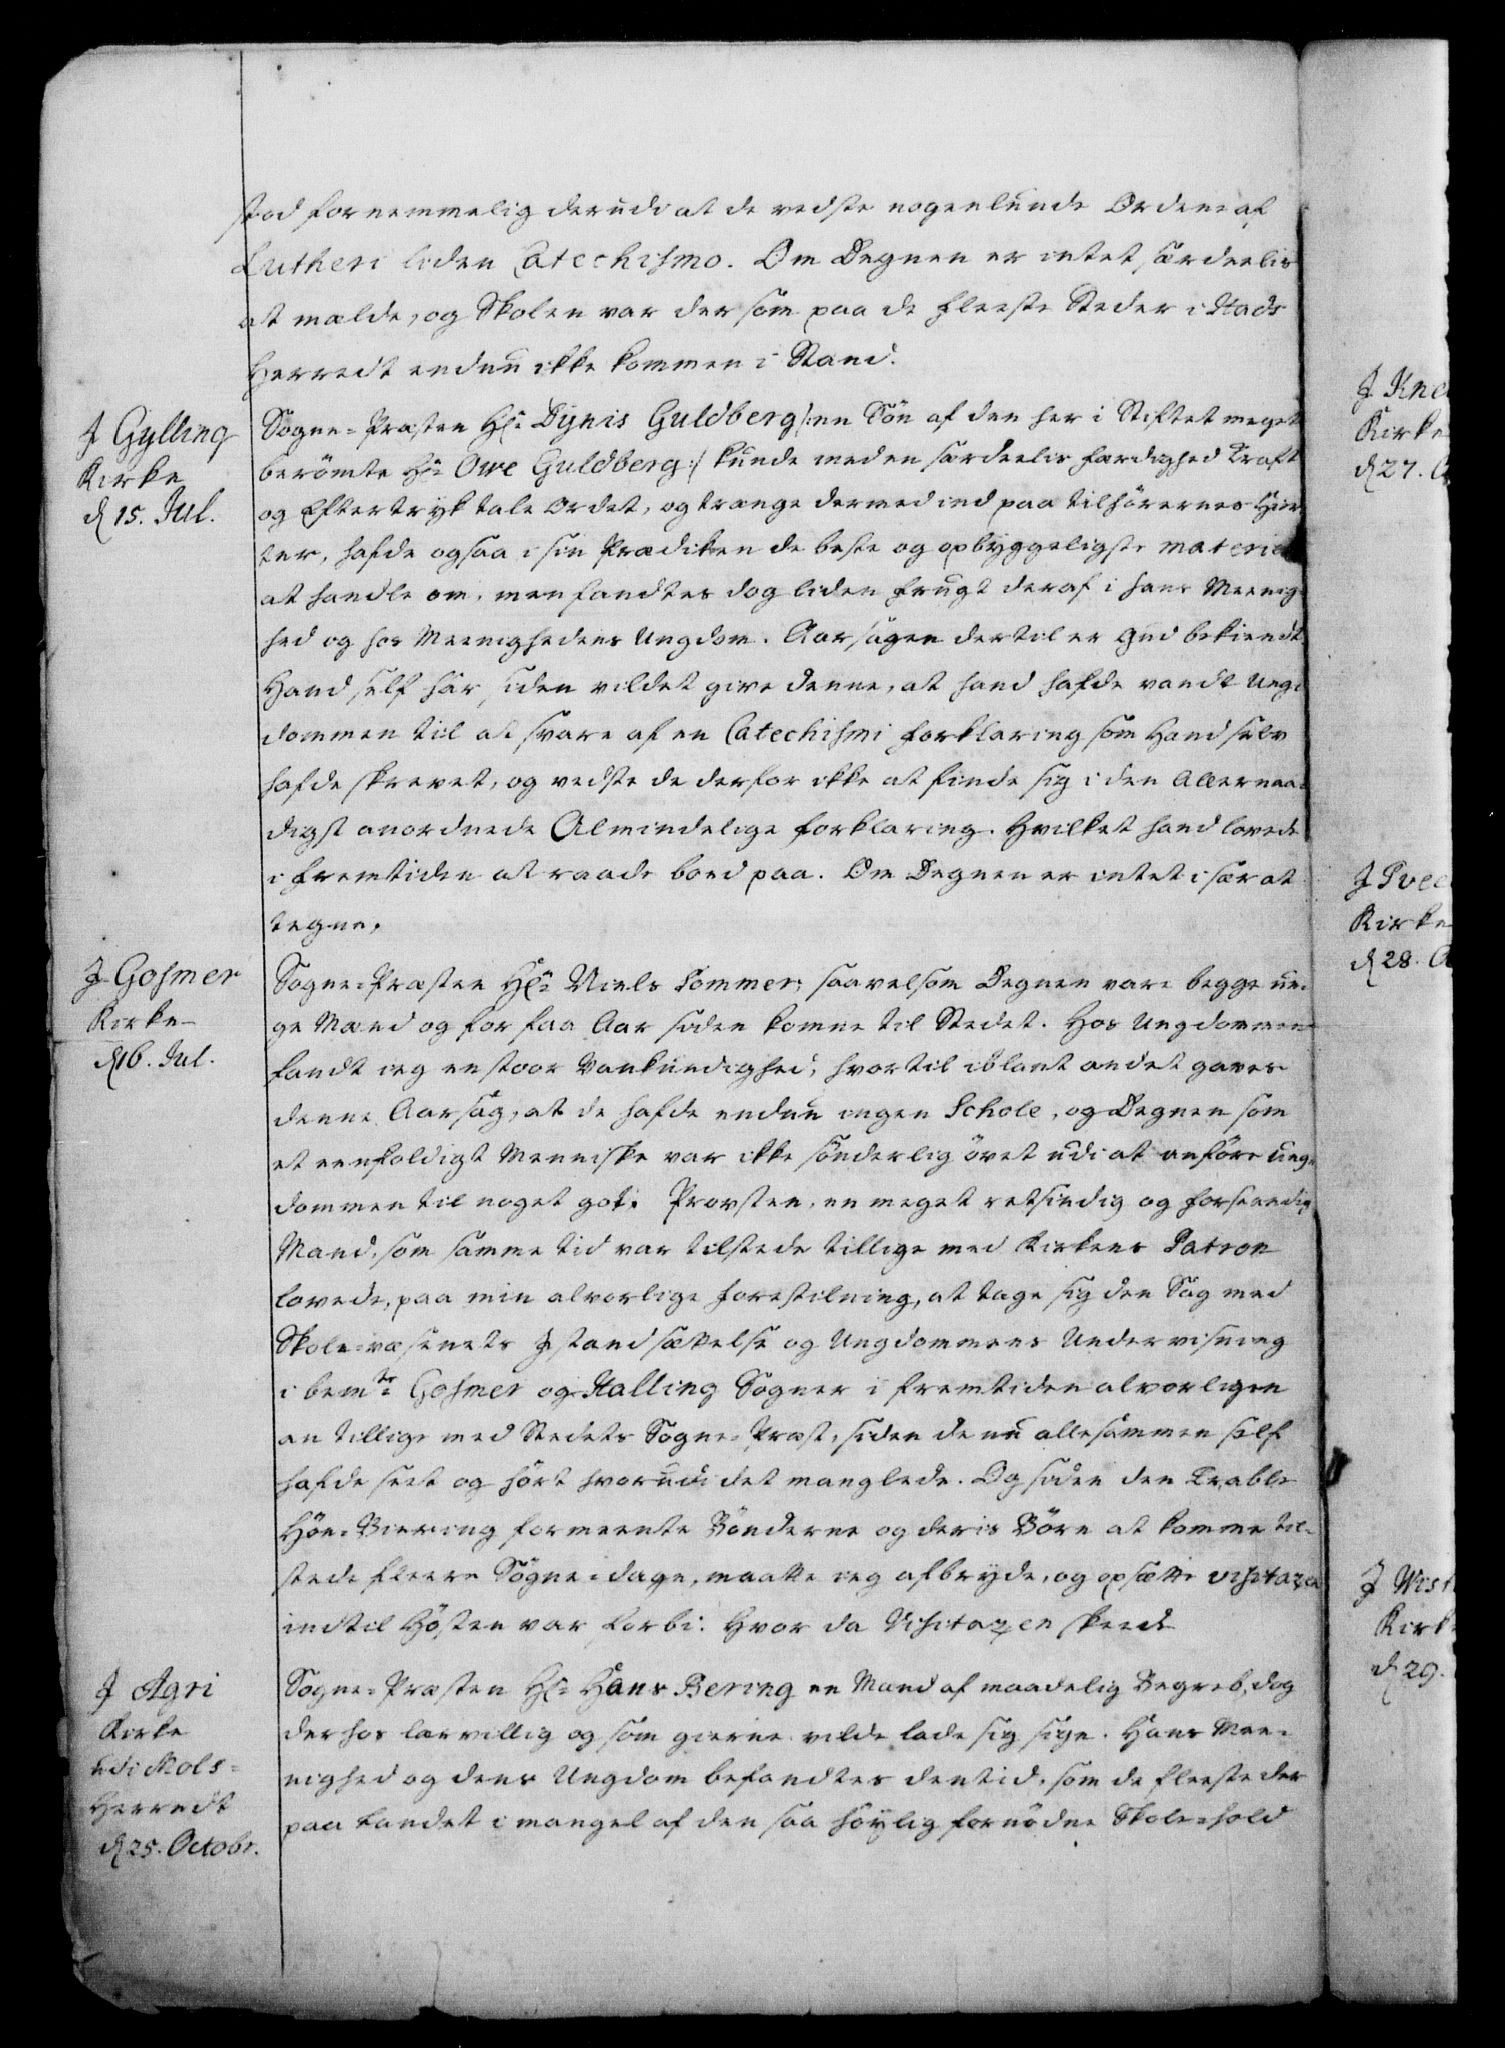 stod fornemmelig derudi at de vedste nogenlunde Ordene af
Lutheri liden Catechismo. Om Degnen er intet særdeelis
at mælde, og Skolen var der som paa de fleeste Steder i Hads
Herredt endnu ikke kommen i Stand.
I Gylling
Kirke
d 15. Jul.
Sogne-Præsten Hr. Dynis Guldberg /: en Søn af den her i Stiftet meget
berömte Hr. Owe Guldberg :/ kunde med en særdeelis færdighed Kraft
og Eftertryk tale Ordet, og trænge dermed ind paa tilhörernes Hier
ter, hafde ogsaa i sin Prædiken de beste og opbyggeligste materie
at handle om, men fandtes dog liden frugt deraf i hans Meenig
hed og hos Meenighedens Ungdom. Aarsagen dertil er Gud bekiendt
Hand self her, siden vildet give denne, at hand hafde vandt Ung-
dommen til at svare af en Catechismi forklaring som Hand selv
hafde skrevet, og vedste de derfor ikke at finde sig i den Allernaa-
digst anordnede Almindelige forklaring. Hvilket hand lovede
i fremtiden at raade boed paa. Om Degnen er intet i sær at
tegne.
I Gosmer
Kirke
d 16. Jul.
Sogne-Præsten Hr. Niels Sommer, saavelsom Degnen vare begge un-
ge Mænd og for faa Aar siden komne til Stedet. Hos Ungdommen
fandt ieg en stoor Vankundighed, hvortil iblant andet gaves
denne Aarsag, at de hafde endnu ingen Schole, og Degnen som
et eenfoldigt Menniske var ikke sönderlig övet udi at anföre ung-
dommen til noget got. Provsten, en meget retsindig og forstandig
Mand, som samme tid var tilstede tillige med Kirkens Patron
lovede, paa min alvorlige forestilning, at tage sig den Sag med
Skole-væsenets Istandsættelse og Ungdommens Undervisning
i bemte Gosmer og Halling Sogner i fremtiden alvorligen
an tillige med Stedets Sogne-Præst, siden de nu allesammen self
hafde seet og hört hvorudi det manglede. Og siden den Trable
Höe-Biering formeente Bönderne og deris Börn at komme til-
stede fleere Sögne-dage, maatte ieg afbryde, og opsætte visitazen
indtil Hösten var forbi. Hvor da Visitazen skeede
I Agri
Kirke
udi Mols-
Herredt
d 25. Octobr.
Sogne-Præsten Hr. Hans Bering en Mand af maadelig Begreb, dog
derhos lærvillig og som gierne vilde lade sig sige. Hans Mee-
nighed og dens Ungdom befandtes den tid, som de fleeste der
paa Landet i mangel af den saa höylig fornödne Skole-hold
I Kne
Kirke
d 27.
I Tvee
Kirke
d 28.
I Wist
Kirk
d 29.